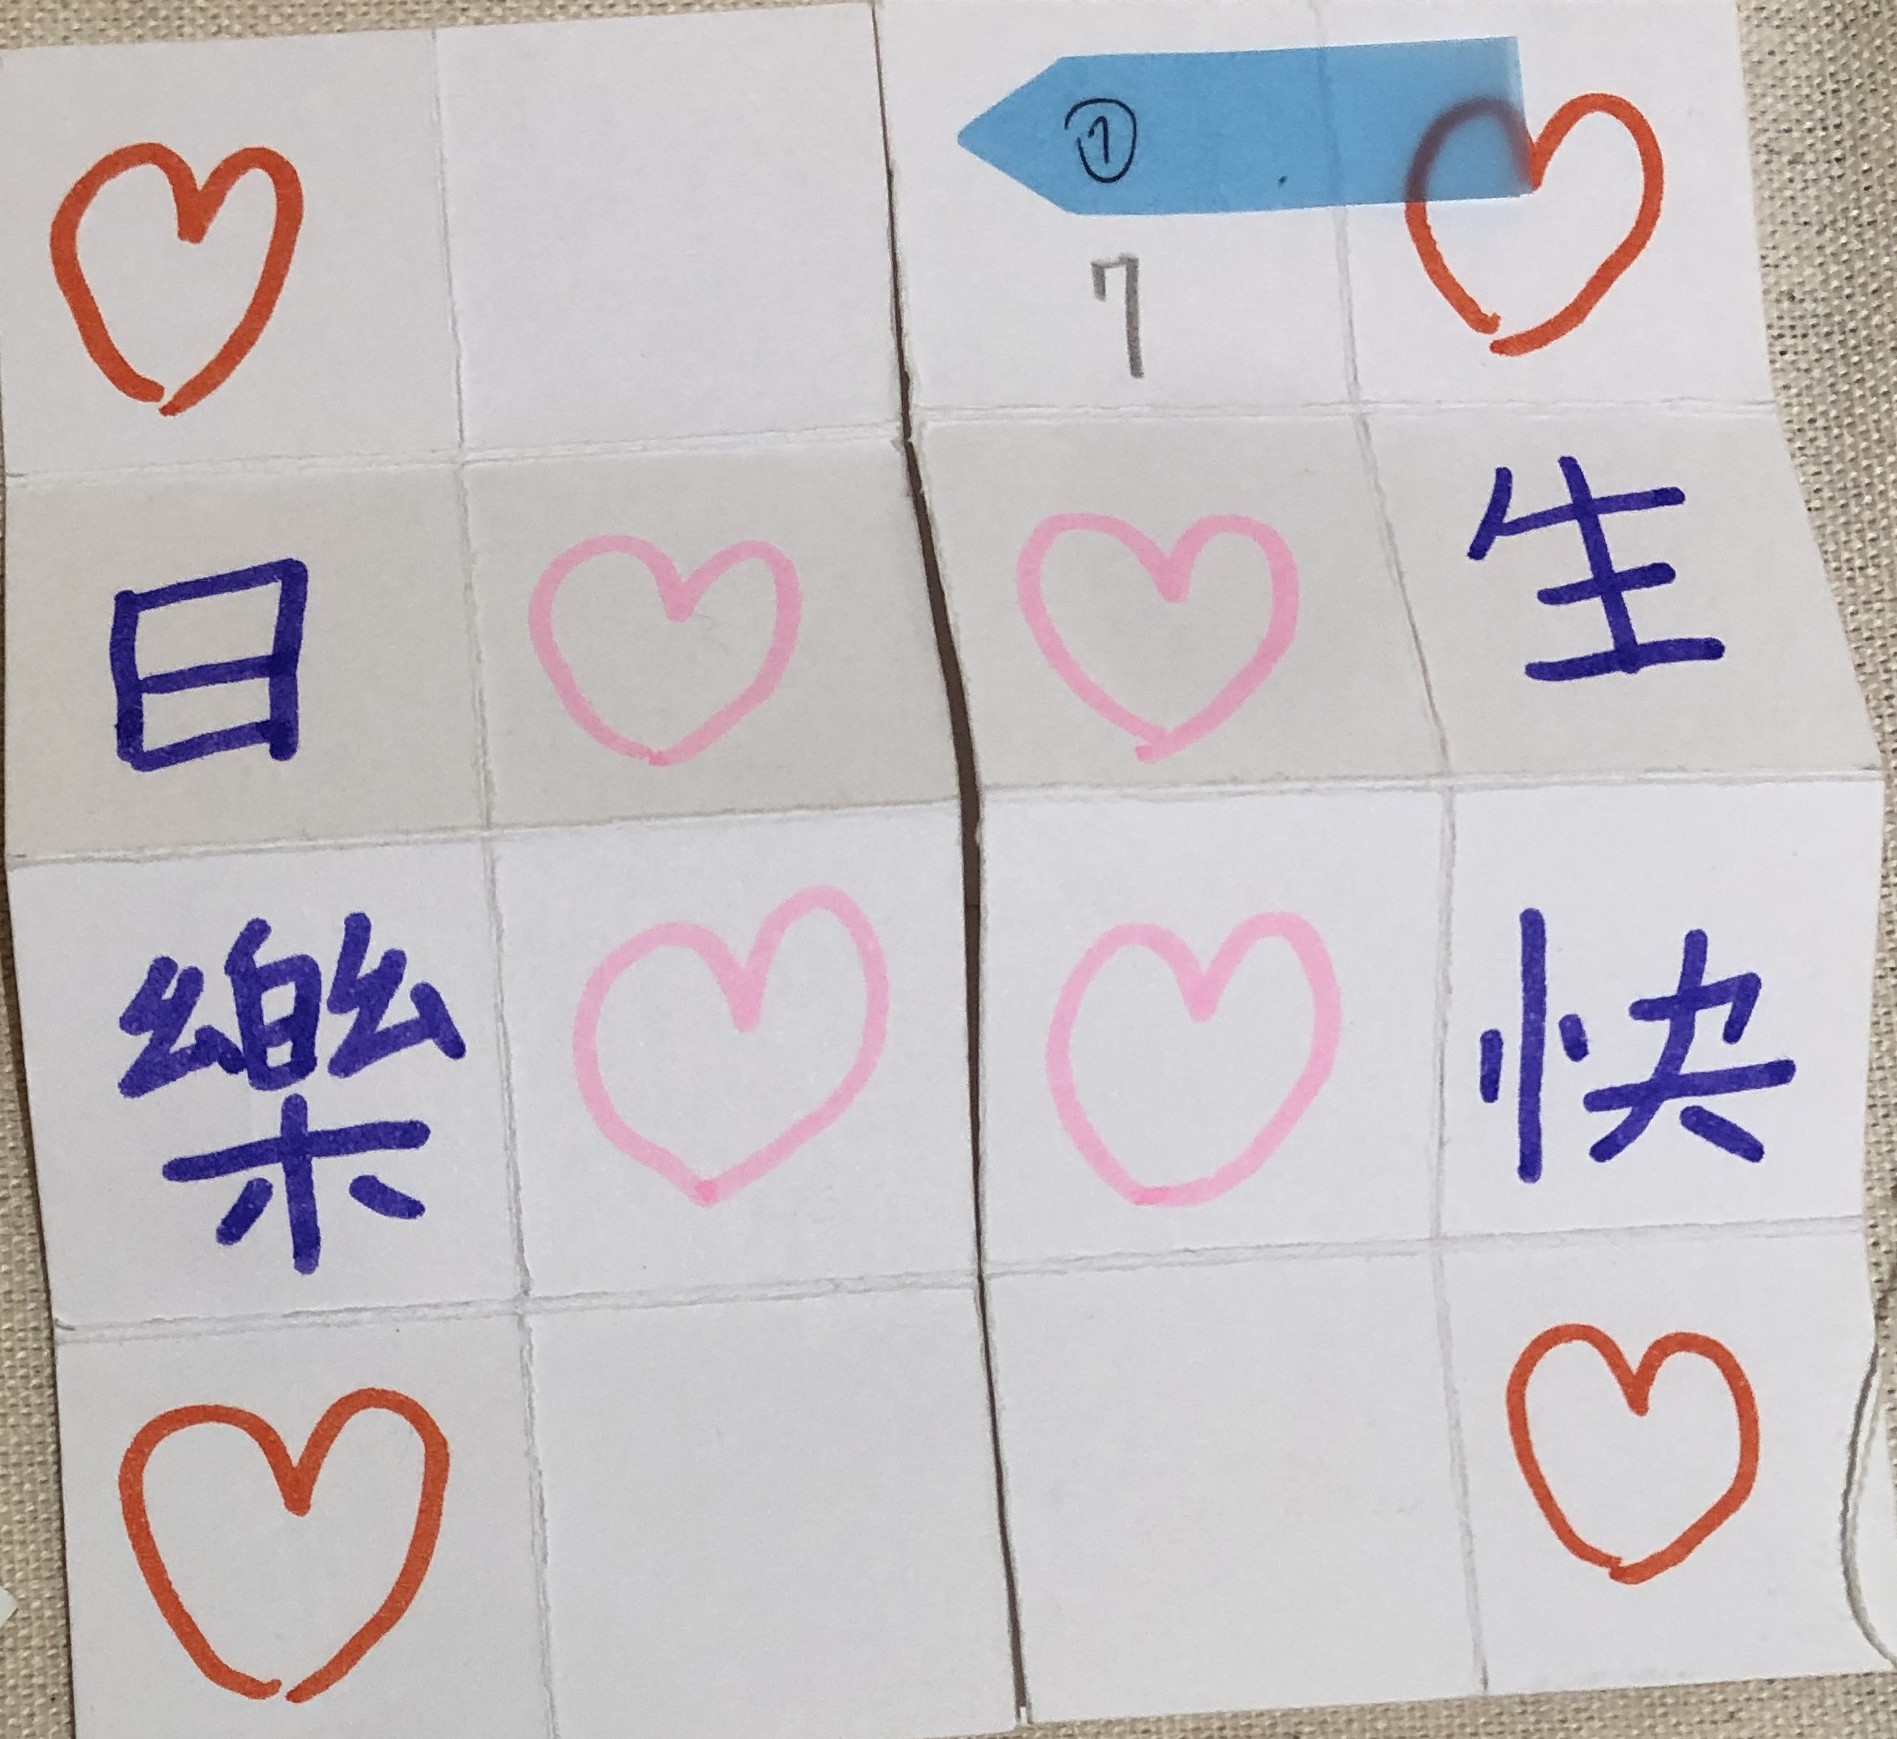 ①
7
日 生
樂 快